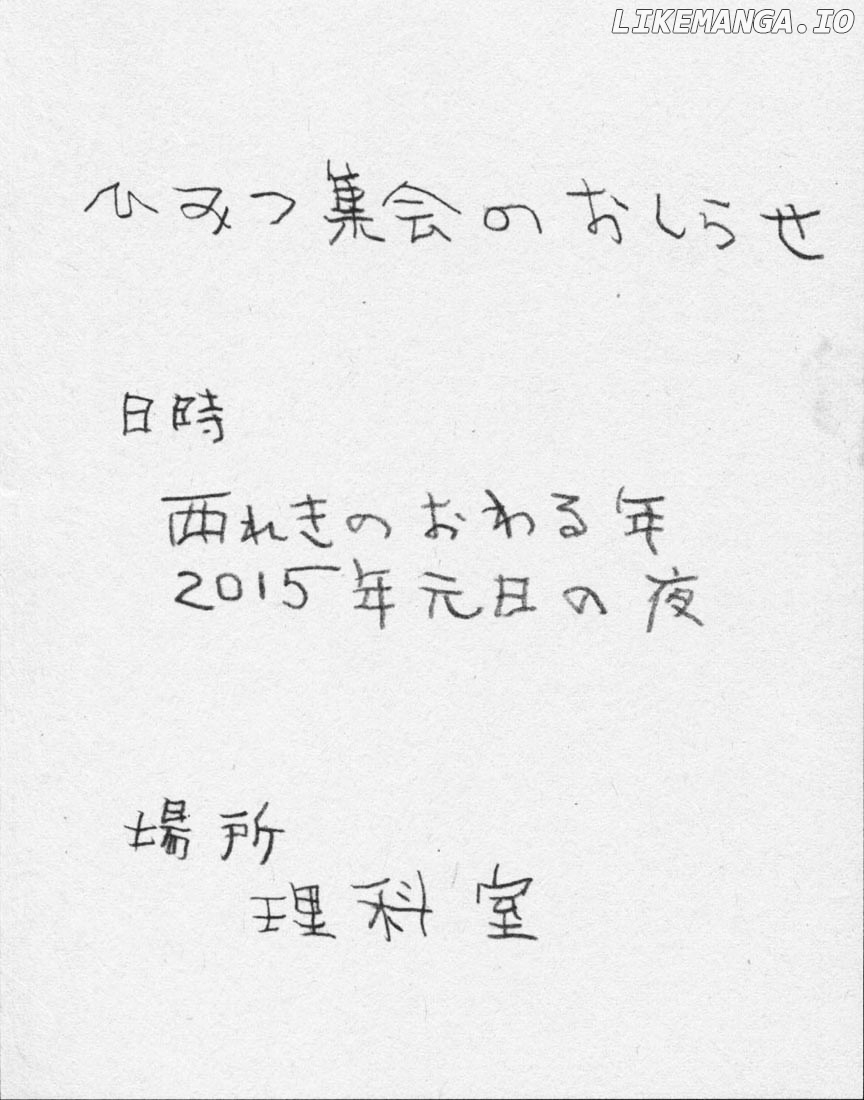 LIKEMANGA.IO
ひみつ集会のおしらせ
日時
西れきのおわる年
2015年元日の夜
場所
理科室